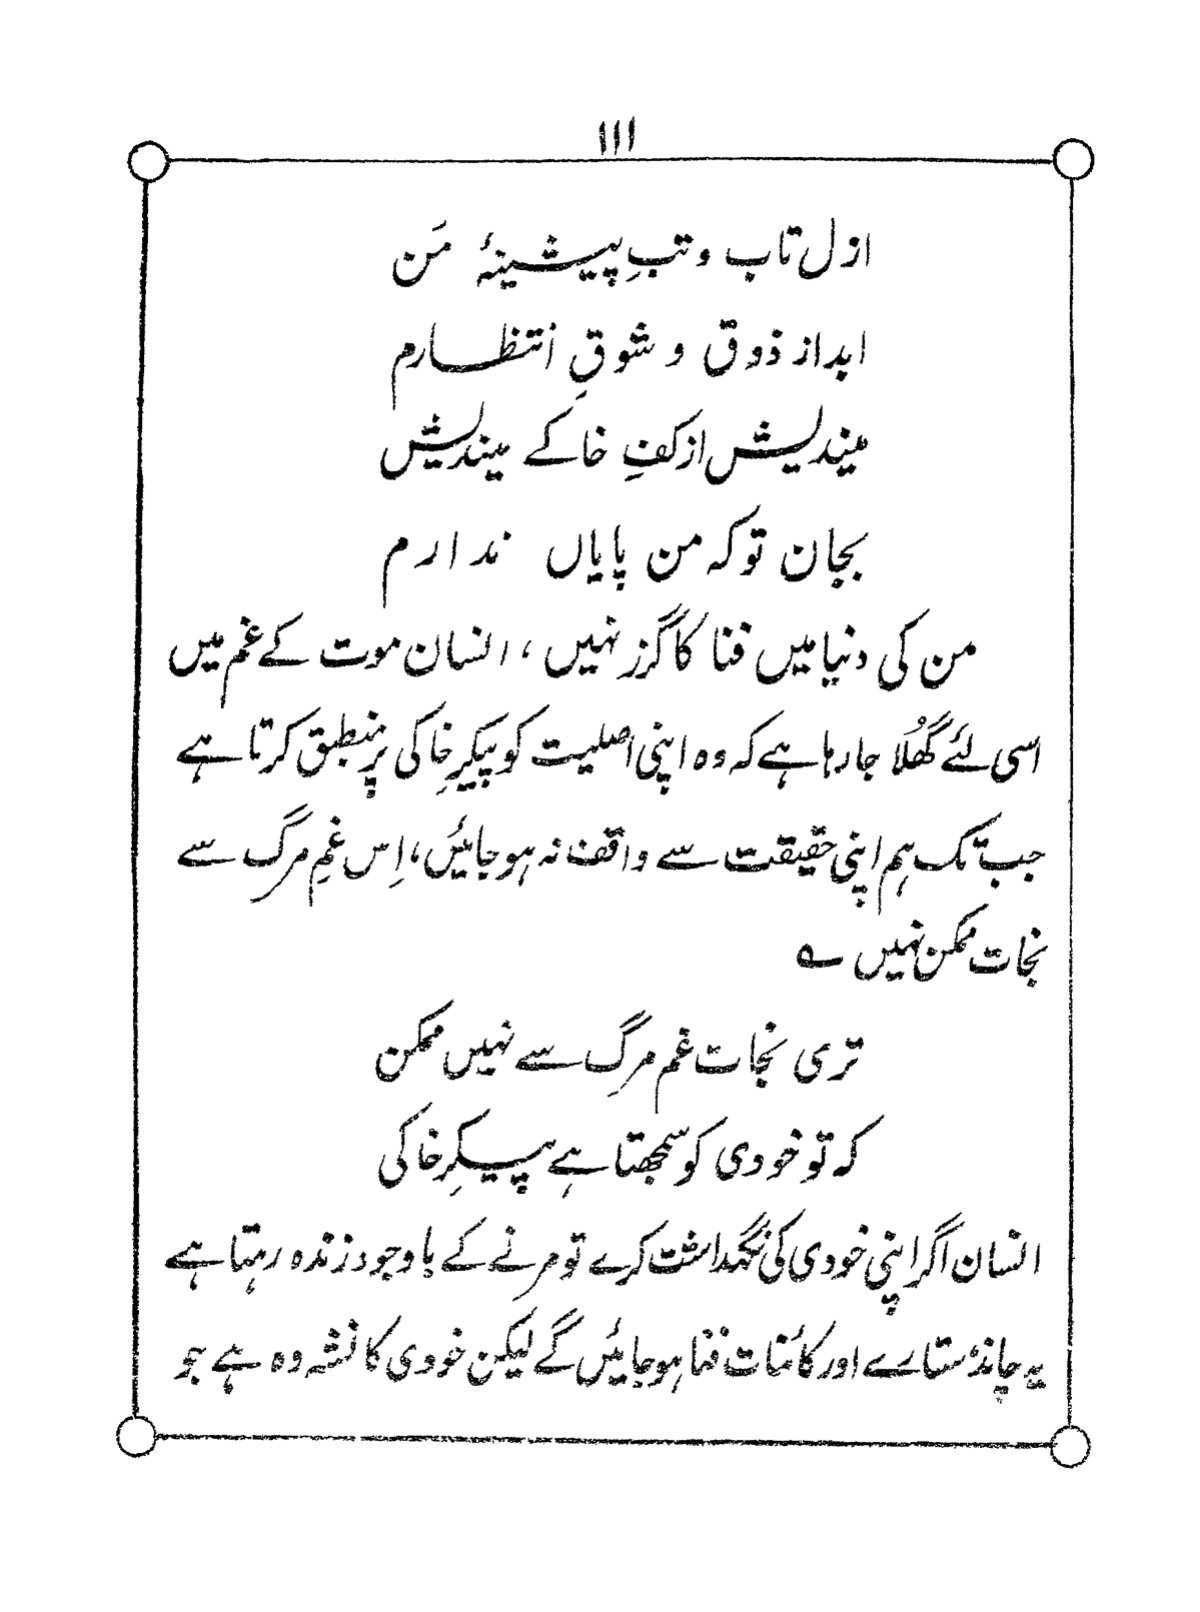 ۱۱۱
ازل تاب و تبِ پیشینۂ مَن
ابد از ذوق و شوقِ انتظارم
میندیش از کفِ خاکے میندیش
بجان تو کہ من پایاں ندارم
من کی دنیا میں فنا کا گزر نہیں، انسان موت کے غم میں
اسی لئے گھُلا جا رہا ہے کہ وہ اپنی اصلیت کو پیکرِ خاکی پر منطبق کرتا ہے
جب تک ہم اپنی حقیقت سے واقف نہ ہو جائیں، اِس غمِ مرگ سے
نجات ممکن نہیں ؎
تری نجات غم مرگِ سے نہیں ممکن
کہ تو خودی کو سمجھتا ہے پیکرِ خاکی
انسان اگر اپنی خودی کی نگہداشت کرے تو مرنے کے باوجود زندہ رہتا ہے
یہ چاند ستارے اور کائنات فنا ہو جائیں گے لیکن خودی کا نشہ وہ ہے جو